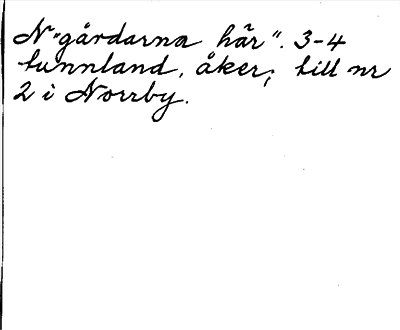 N "gårdarna här". 3-4
tunnland, åker; till nr
2 i Norrby.